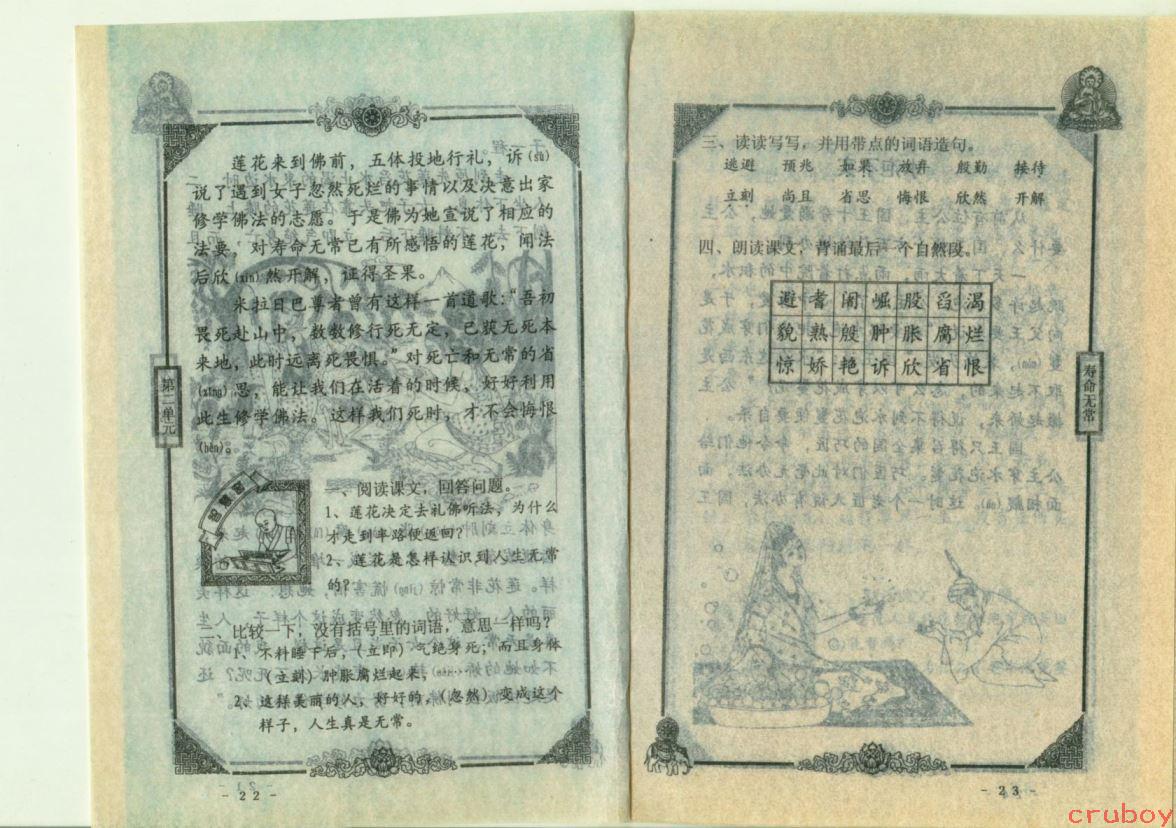 莲花来到佛前，五体投地行礼，诉(sù)
说了遇到女子忽然死烂的事情以及决意出家
修学佛法的志愿。于是佛为她宣说了相应的
法要，对寿命无常已有所感悟的莲花，闻法
后欣(xīn)然开解，证得圣果。
米拉日巴尊者曾有这样一首道歌：“吾初
畏死赴山中，数数修行死无定，已获无死本
来地，此时远离死畏惧。”对死亡和无常的省
(xǐng)思，能让我们在活着的时候，好好利用
此生修学佛法。这样我们死时，才不会悔恨
(hèn)。
第二单元
一、阅读课文，回答问题。
1、莲花决定去礼佛听法，为什么
才走到半路便返回？
2、莲花是怎样认识到人生无常
的？
二、比较一下，没有括号里的词语，意思一样吗？
1、不料睡下后，（立即）气绝身死；而且身体
（立刻）肿胀腐烂起来，
2、这样美丽的人，好好的，（忽然）变成这个
样子，人生真是无常。
- 22 -
三、读读写写，并用带点的词语造句。
逃避 预兆 如果 放弃 殷勤 接待
立刻 尚且 省思 悔恨 欣然 开解
四、朗读课文，背诵最后一个自然段。
避 耆 阇 崛 股 舀 渴
貌 熟 殷 肿 胀 腐 烂
惊 娇 艳 诉 欣 省 恨
寿命无常
- 23 -
cruboy